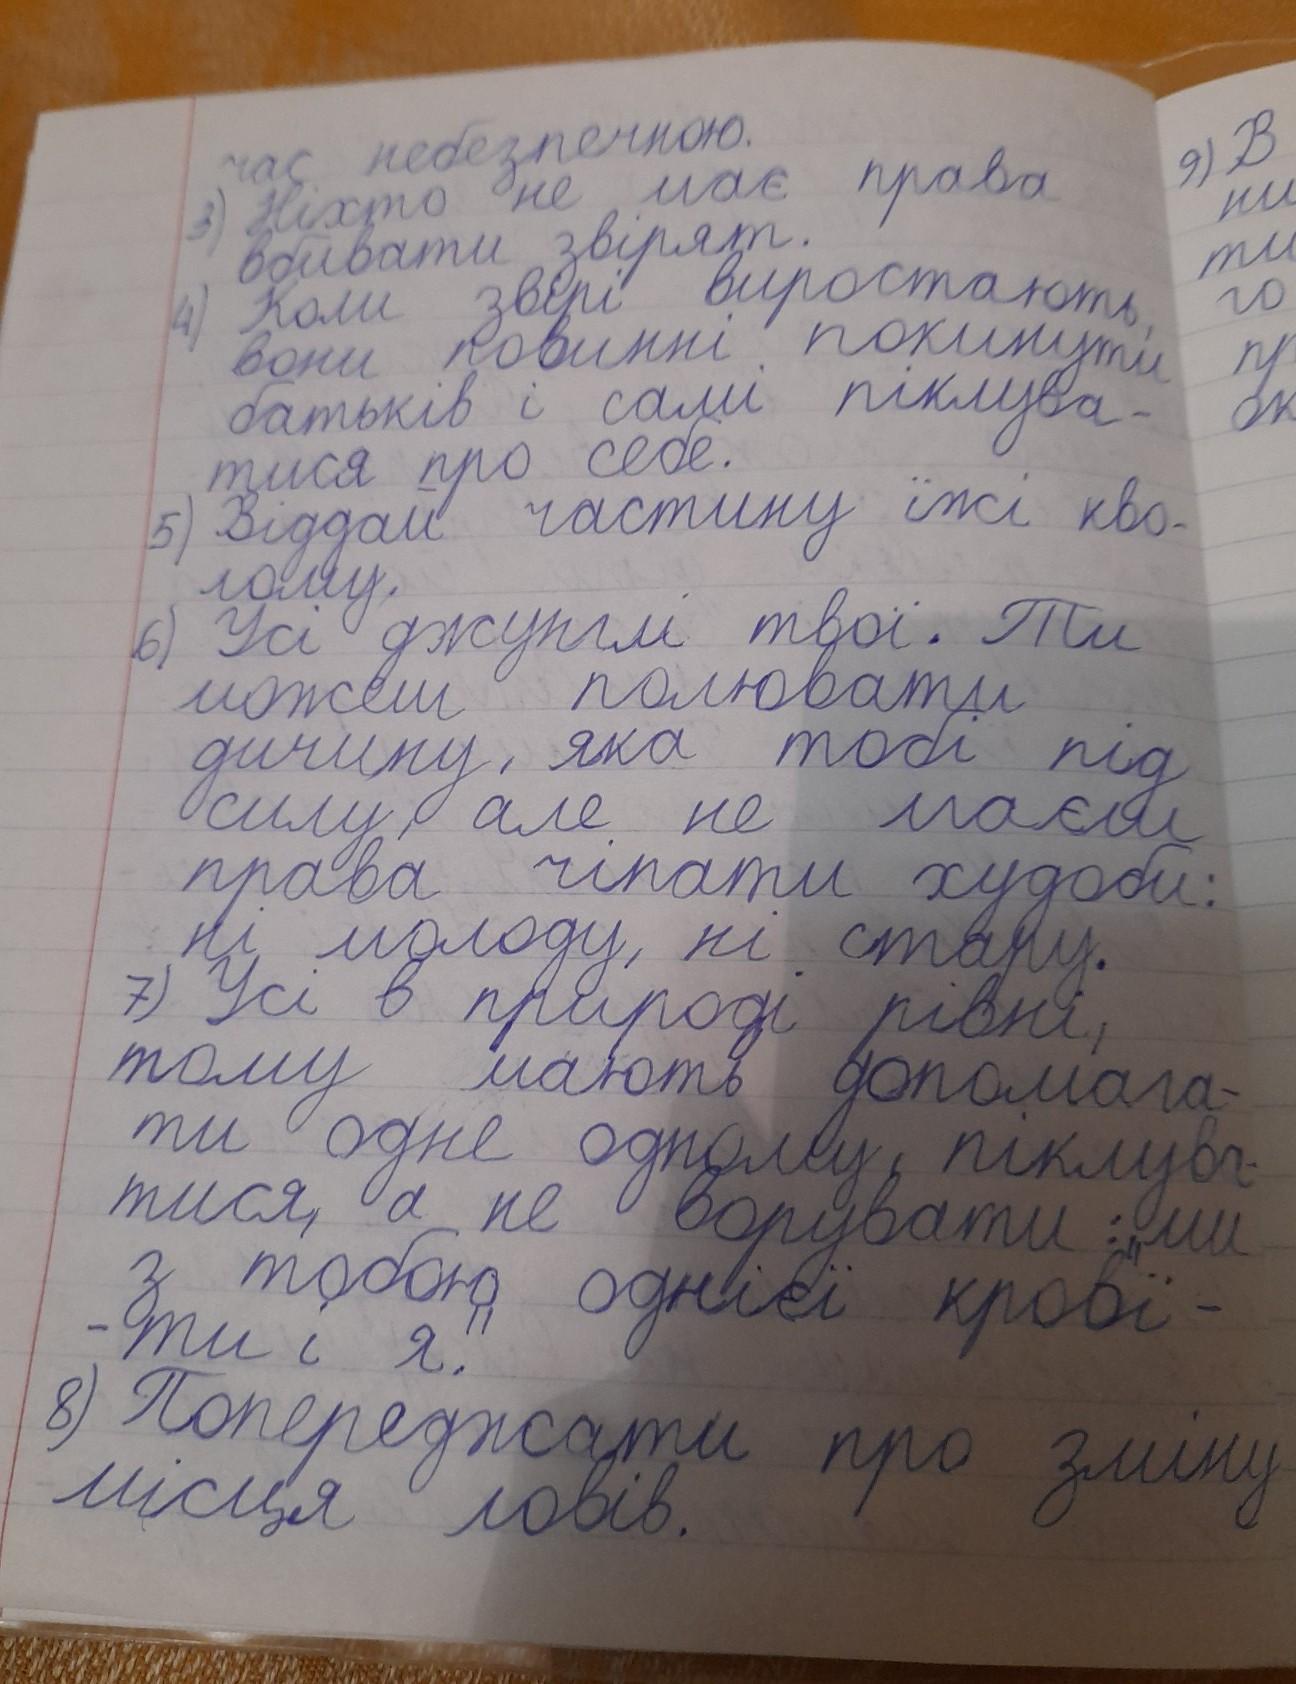 час небезпечною.
3) Ніхто не має права
вбивати звірят.
4) Коли звірі виростають,
вони повинні покинути
батьків і самі піклува-
тися про себе.
5) Віддай частину їжі кво-
лому.
6) Усі джунглі твої. Ти
можеш полювати
дичину, яка тобі під
силу, але не маєш
права чіпати худоби:
ні молоду, ні стару.
7) Усі в природі рівні,
тому мають допомага-
ти одне одному, піклува-
тися, а не ворувати: "ми
з тобою однієї крові -
- ти і я."
8) Попереджати про зміну
місця ловів.
9) В
ни
ти
го
пр
ок